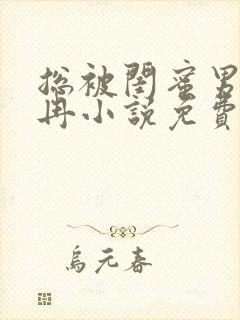 总被閨蜜男
冉小説免費
烏元春